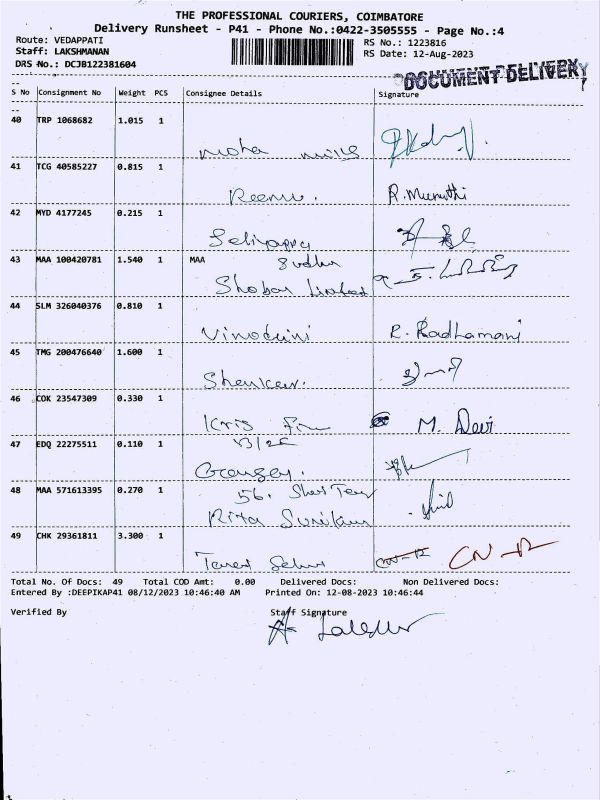 THE PROFESSIONAL COURIERS, COIMBATORE
Delivery Runsheet - P41 - Phone No.:0422-3505555 - Page No.:4
Route: VEDAPPATI
Staff: LAKSHMANAN
DRS No.: DCJB122381604
RS No.: 1223816
RS Date: 12-Aug-2023
DOCUMENT DELIVERY
S No Consignment No Weight PCS Consignee Details Signature
40 TRP 1068682 1.015 1
moha mills
41 TCG 40585227 0.815 1
Reenu. R. Muruthi
42 MYD 4177245 0.215 1
43 MAA 100420781 1.540 1 MAA
Limited
44 SLM 326040376 0.810 1
Vinodini R. Radhamani
45 TMG 200476640 1.600 1
46 COK 23547309 0.330 1
Kris M. Devi
47 EDQ 22275511 0.110 1
48 MAA 571613395 0.270 1
56.
Rita
49 CHK 29361811 3.300 1
CN-12 CN-12
Total No. Of Docs: 49 Total COD Amt: 0.00 Delivered Docs: Non Delivered Docs:
Entered By :DEEPIKAP41 08/12/2023 10:46:40 AM Printed On: 12-08-2023 10:46:44
Verified By Staff Signature